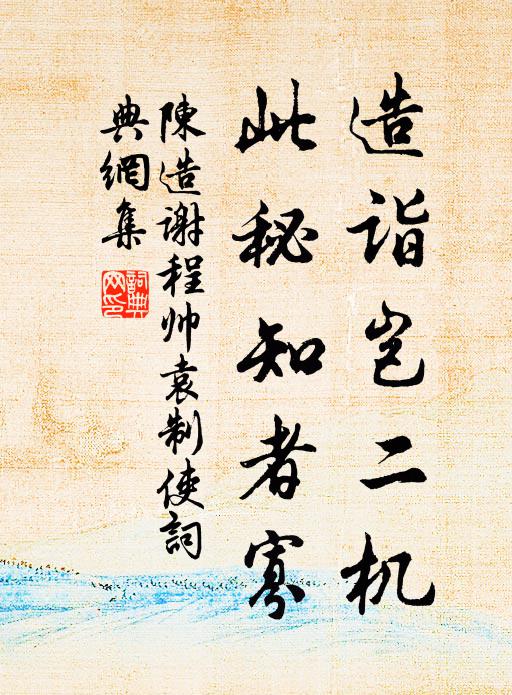 造诣岂二机
此秘知者寡
陳造谢程帅袁制使詞
典網集
詞典
网印